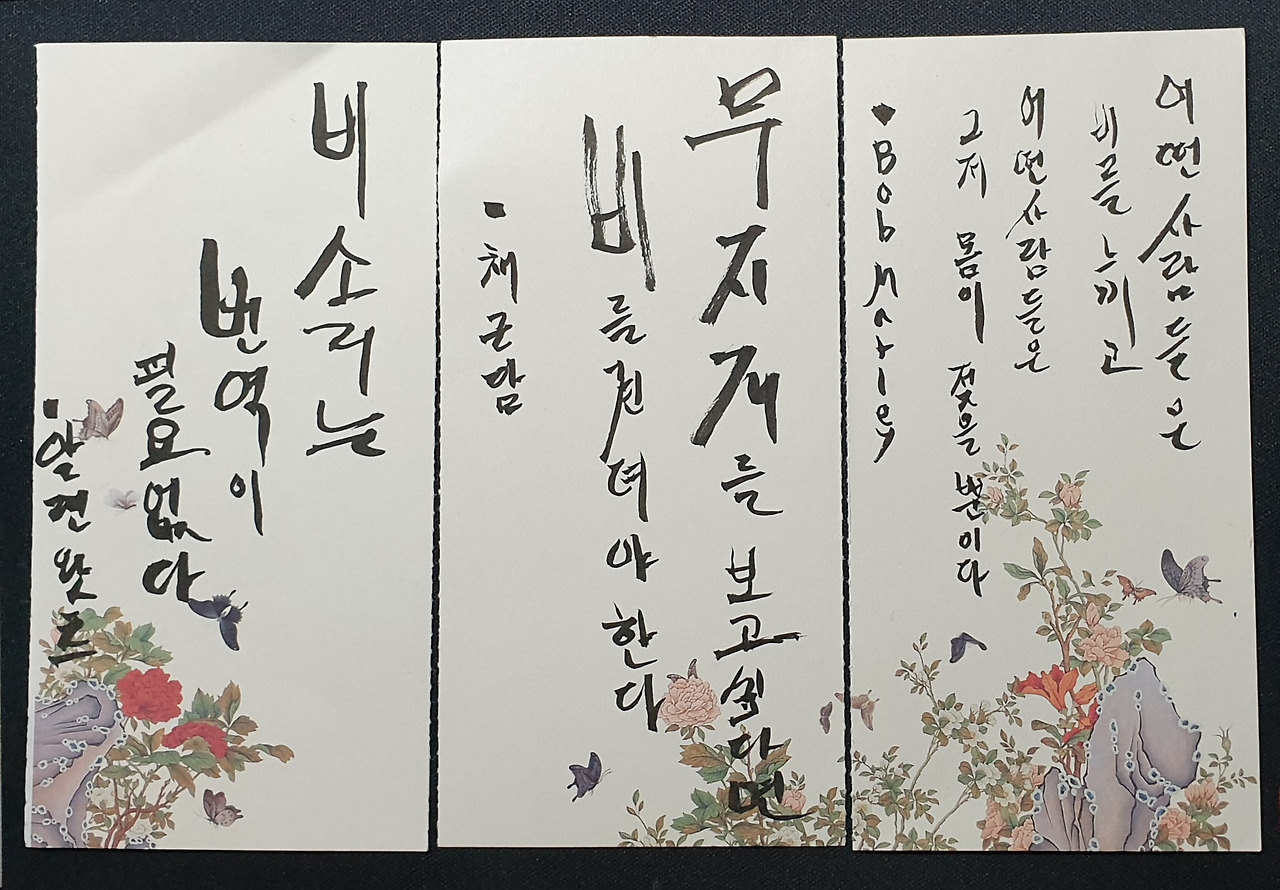 어떤사람들은
비를 느끼고
어떤사람들은
그저 몸이 젖을 뿐이다
▪Bob Marley
무지개를 보고싶다면
비를 견뎌야 한다
▪채근담
비소리는
번역이
필요없다
▪알런왓츠